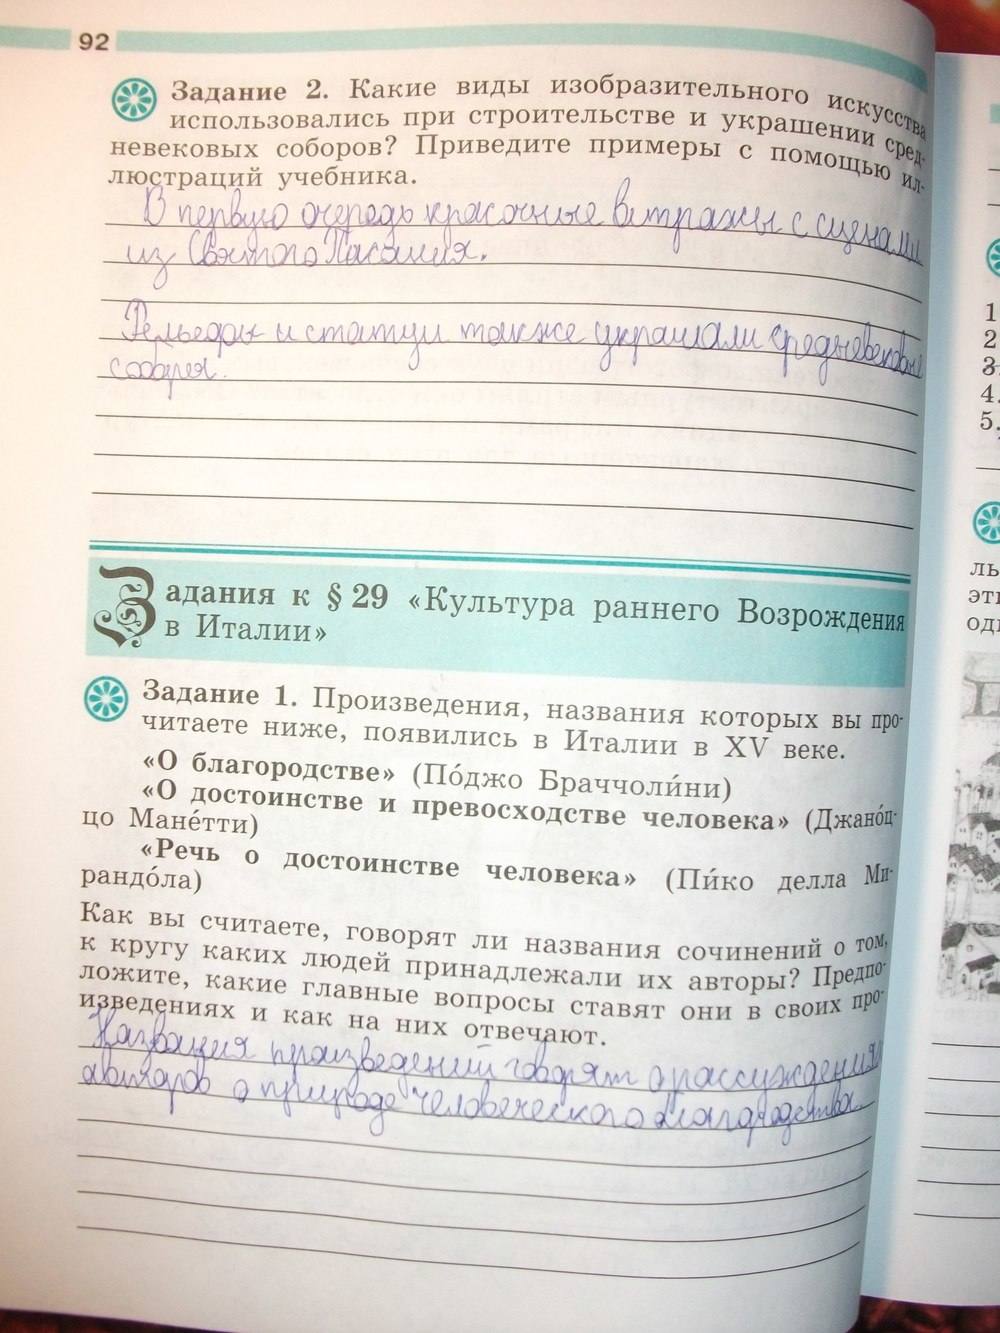 92
Задание 2. Какие виды изобразительного искусства
использовались при строительстве и украшении сред-
невековых соборов? Приведите примеры с помощью ил-
люстраций учебника.
В первую очередь красочные витражы с сценами
из Святого Писания.
Рельефы и статуи также украшали средневековые
соборы.
Задания к § 29 «Культура раннего Возрождения
в Италии»
Задание 1. Произведения, названия которых вы про-
читаете ниже, появились в Италии в XV веке.
«О благородстве» (По́джо Браччоли́ни)
«О достоинстве и превосходстве человека» (Джано́ц-
цо Мане́тти)
«Речь о достоинстве человека» (Пи́ко делла Ми-
рандо́ла)
Как вы считаете, говорят ли названия сочинений о том,
к кругу каких людей принадлежали их авторы? Предпо-
ложите, какие главные вопросы ставят они в своих про-
изведениях и как на них отвечают.
Названия произведений говорят о рассуждениях
авторов о природе человеческого благородства.
1
2
3.
4.
5.
ль
эти
оди